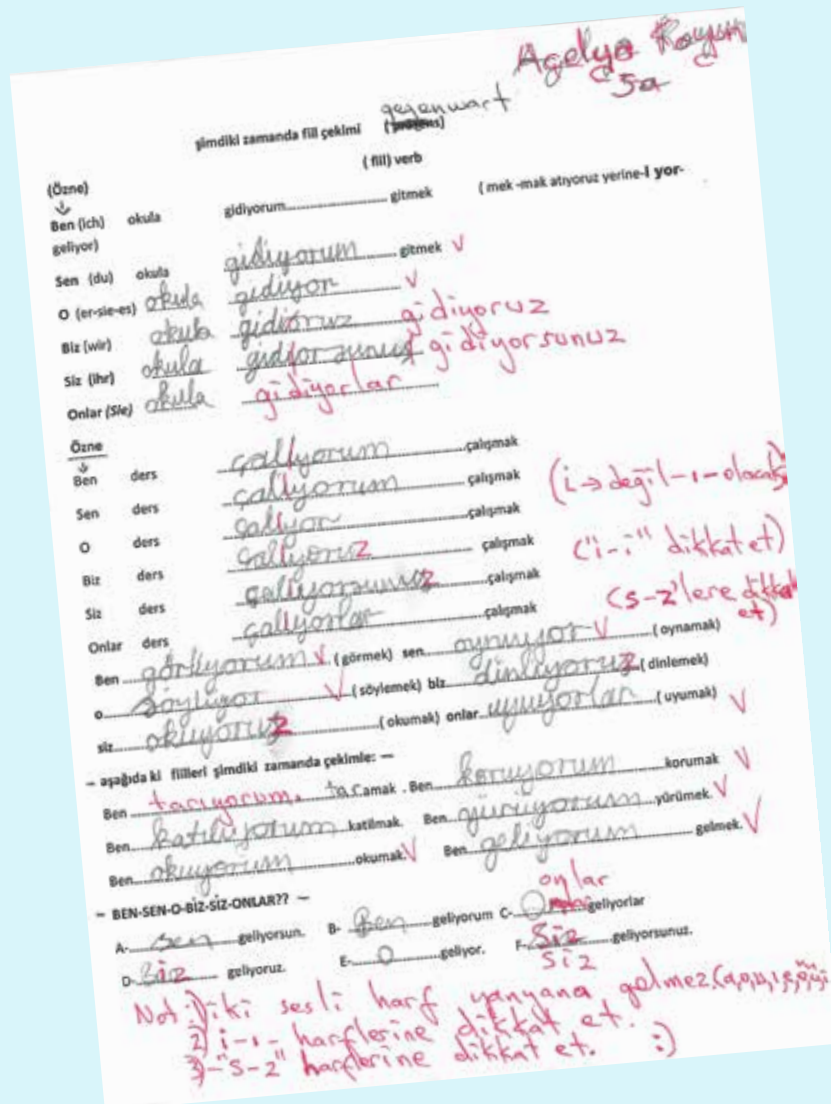 Açelya
5a
gegenwart
şimdiki zamanda fiil çekimi
( fiil) verb
(Özne)
Ben (ich) okula gidiyorum............ gitmek ( mek -mak atıyoruz yerine-İ yor-
geliyor)
Sen (du) okula gidiyorum gitmek
O (er-sie-es) okula gidiyor
Biz (wir) okula gidioruz gidiyoruz
Siz (ihr) okula gidiyorsunuz
Onlar (Sie) okula gidiyorlar
Özne
Ben ders çalıyorum çalışmak
Sen ders çalıyorum çalışmak
O ders çalıyor çalışmak
(i→ değil -ı- olacak)
Biz ders çalıyoruz çalışmak
("i-i" dikkat et)
Siz ders çalıyorsunuz çalışmak
(s-z'lere dikkat et)
Onlar ders çalıyorlar çalışmak
Ben görüyorum ( görmek) sen oynuyor ( oynamak)
o söylüyor ( söylemek) biz dinliyoruz ( dinlemek)
siz okuyoruz ( okumak) onlar uyuyorlar ( uyumak)
– aşağıda ki fiilleri şimdiki zamanda çekimle: —
Ben tarıyorum. taramak . Ben koruyorum korumak
Ben katılıyorum katılmak. Ben yürüyorum yürümek.
Ben okuyorum okumak. Ben geliyorum gelmek.
– BEN-SEN-O-BİZ-SİZ-ONLAR?? —
onlar
A- Sen geliyorsun. B- Ben geliyorum C- geliyorlar
D- Biz geliyoruz. E- O geliyor. F- Siz geliyorsunuz.
siz
Not: 1) iki sesli harf yanyana gelmez.
2) i-ı- harflerine dikkat et.
3)-"s-z" harflerine dikkat et. :)